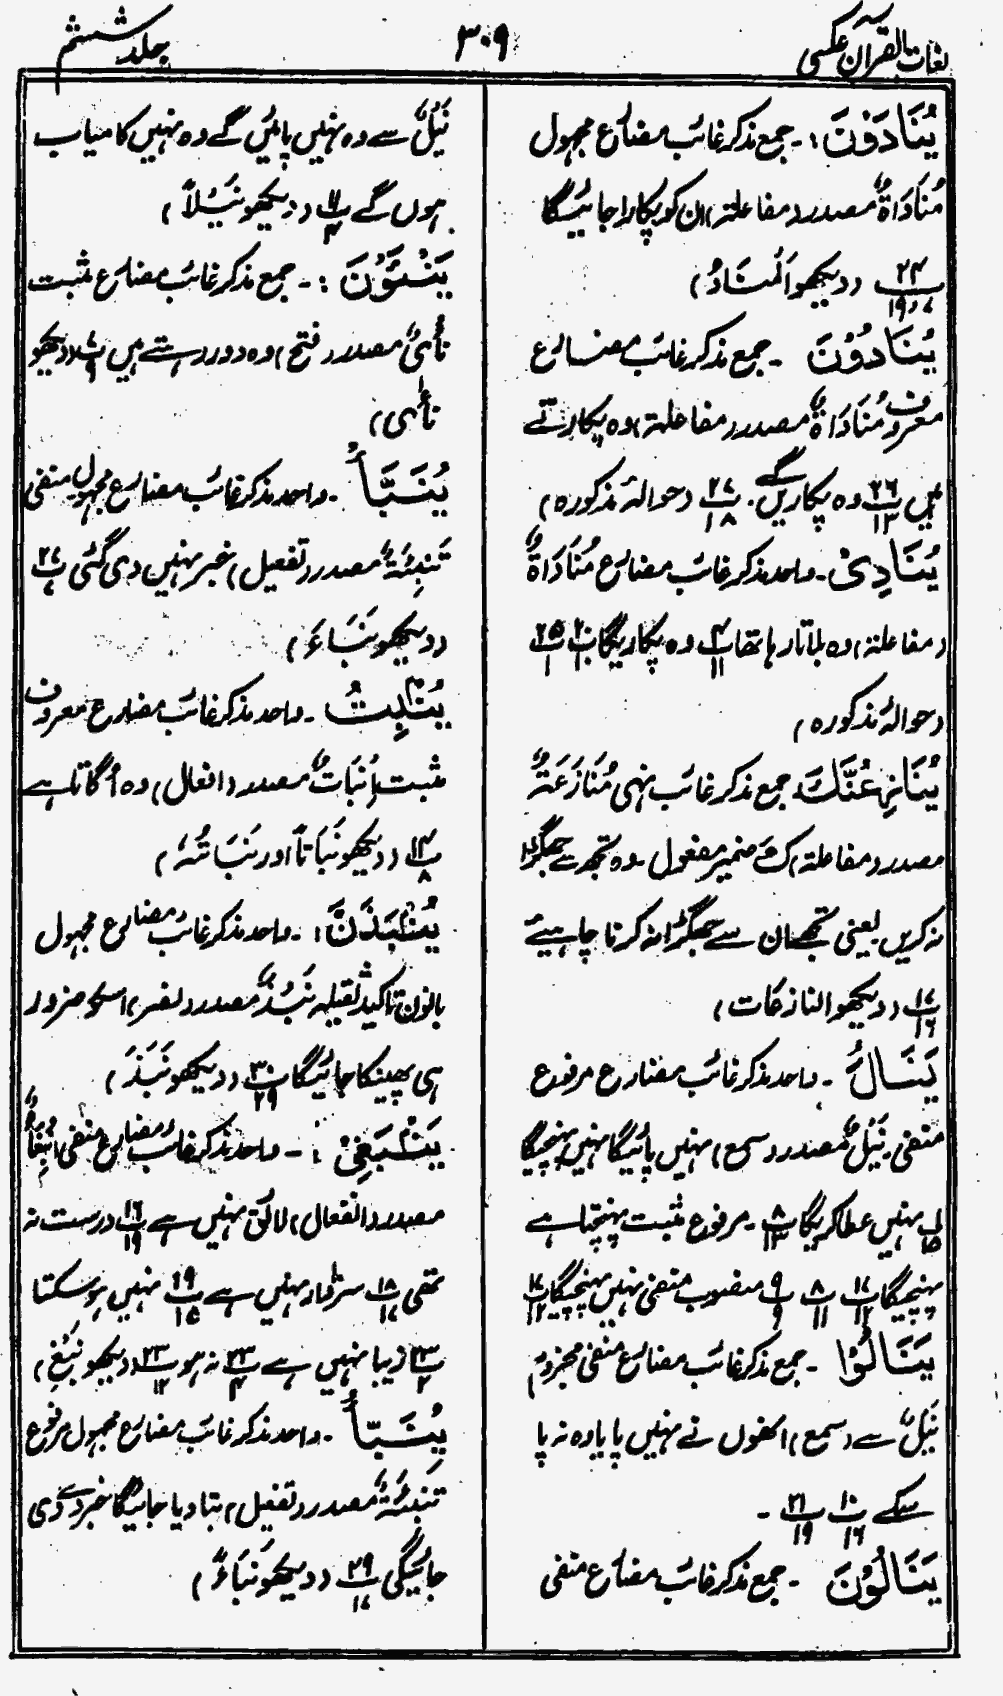 لغات القرآن عکسی
۳۰۹
جلد ششم
یُنَادَوْنَ :۔ جمع مذکر غائب مضارع مجہول
مُنَادَاةٌ مصدر (مفاعلۃ) ان کو پکارا جائیگا
پ ۲۴ / ۱۹،۱۷ (دیکھو اَلْمُنَادُ)
یُنَادُوْنَ ۔ جمع مذکر غائب مضارع
معروف مُنَادَاةٌ مصدر (مفاعلۃ) وہ پکارتے
ہیں پ ۲۶ / ۱۳ وہ پکاریں گے۔ پ ۲۷ / ۱۸ (حوالۂ مذکورہ)
یُنَادِیْ ۔ واحد مذکر غائب مضارع مُنَادَاةٌ
(مفاعلۃ) وہ بلاتا رہا تھا پ ۴ / ۱۱ وہ پکاریگا پ ۲۰ پ ۲۵ / ۱
(حوالۂ مذکورہ)
یُنَازِعُنَّكَ جمع مذکر غائب نہی مُنَازَعَةٌ
مصدر (مفاعلۃ) كَ ضمیر مفعول ۔ وہ تجھ سے جھگڑا
نہ کریں یعنی تجھے ان سے جھگڑا نہ کرنا چاہیئے
پ ۱۷ / ۱۶ (دیکھو النازعات)
یَنَالُ ۔ واحد مذکر غائب مضارع مرفوع
منفی۔ نَیْلٌ مصدر (سمع) نہیں پائیگا نہیں پہنچیگا
پ ۱ / ۱۵ نہیں عطا کریگا پ ۸ / ۱۳ ۔ مرفوع مثبت پہنچتا ہے
پہنچیگا پ ۱۷ / ۱۲ پ ۸ / ۱۱ پ ۹ / ۹ منصوب منفی نہیں پہنچیگا پ ۱۷ / ۱۲
یَنَالُوْا ۔ جمع مذکر غائب مضارع منفی مجزوم
نَیْلٌ سے (سمع) انھوں نے نہیں پایا وہ نہ پا
سکے پ ۱۰ / ۱۶ پ ۲۱ / ۱۹ ۔
یَنَالُوْنَ ۔ جمع مذکر غائب مضارع منفی
نَیْلٌ سے وہ نہیں پائیں گے وہ نہیں کامیاب
ہوں گے پ ۱۱ / ۴ (دیکھو نَیْلاً)
یَنْئَوْنَ :۔ جمع مذکر غائب مضارع مثبت
نَأْیٌ مصدر (فتح) وہ دور رہتے ہیں پ ۷ / ۹ (دیکھو
نَاٰی)
یُنَبَّأْ ۔ واحد مذکر غائب مضارع مجہول منفی
تَنْبِئَةٌ مصدر (تفعیل) خبر نہیں دی گئی پ ۲۷ / ۷
(دیکھو نَبَاءَ)
یُنْبِتُ ۔ واحد مذکر غائب مضارع معروف
مثبت اِنْبَاتٌ مصدر (افعال) وہ اُگاتا ہے
پ ۱۴ / ۸ (دیکھو نَبَاتاً اور نَبَاتُهٗ)
یُنْبَذَنَّ :۔ واحد مذکر غائب مضارع مجہول
بانون تاکید ثقیلہ نَبْذٌ مصدر (نصر) اسکو ضرور
ہی پھینکا جائیگا پ ۳۰ / ۲۹ (دیکھو نَبَذَ)
یَنْبَغِیْ :۔ واحد مذکر غائب مضارع منفی اِنْبِغَاءٌ
مصدر (انفعال) لائق نہیں ہے پ ۱۶ / ۱۹ درست نہ
تھی پ ۱۸ / ۱۷ سزاوار نہیں ہے پ ۱۹ / ۱۵ نہیں ہو سکتا
پ ۲۳ / ۲ زیبا نہیں ہے پ ۲۳ / ۴ نہ ہو پ ۲۳ / ۱۲ (دیکھو نَبْغِ)
یُنَبَّأُ ۔ واحد مذکر غائب مضارع مجہول مرفوع
تَنْبِئَةٌ مصدر (تفعیل) بتا دیا جائیگا خبر دے دی
جائیگی پ ۲۹ / ۱۷ (دیکھو نَبَاءٌ)